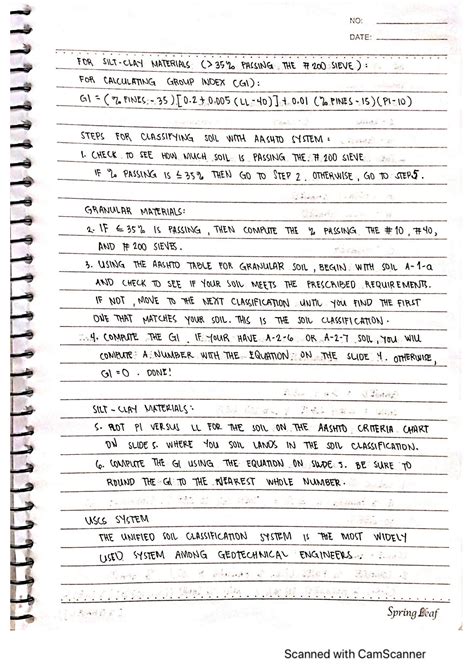 NO:
DATE:
FOR SILT-CLAY MATERIALS (>35% PASSING THE #200 SIEVE):
FOR CALCULATING GROUP INDEX (GI):
GI = (% FINES - 35)[0.2 + 0.005 (LL-40)] + 0.01 (% FINES - 15)(PI-10)
STEPS FOR CLASSIFYING SOIL WITH AASHTO SYSTEM:
1. CHECK TO SEE HOW MUCH SOIL IS PASSING THE #200 SIEVE
IF % PASSING IS ≤ 35% THEN GO TO STEP 2. OTHERWISE, GO TO STEP 5.
GRANULAR MATERIALS:
2. IF ≤ 35% IS PASSING, THEN COMPUTE THE % PASSING THE #10, #40,
AND #200 SIEVES.
3. USING THE AASHTO TABLE FOR GRANULAR SOIL, BEGIN WITH SOIL A-1-a
AND CHECK TO SEE IF YOUR SOIL MEETS THE PRESCRIBED REQUIREMENT.
IF NOT, MOVE TO THE NEXT CLASSIFICATION UNTIL YOU FIND THE FIRST
ONE THAT MATCHES YOUR SOIL. THIS IS THE SOIL CLASSIFICATION.
4. COMPUTE THE GI. IF YOUR HAVE A-2-6 OR A-2-7 SOIL, YOU WILL
COMPUTE A NUMBER WITH THE EQUATION ON THE SLIDE 4. OTHERWISE,
GI = 0. DONE!
SILT-CLAY MATERIALS:
5. PLOT PI VERSUS LL FOR THE SOIL ON THE AASHTO CRITERIA CHART
ON SLIDE 5. WHERE YOU SOIL LANDS IN THE SOIL CLASSIFICATION.
6. COMPUTE THE GI USING THE EQUATION ON SLIDE 5. BE SURE TO
ROUND THE GI TO THE NEAREST WHOLE NUMBER.
USCS SYSTEM
THE UNIFIED SOIL CLASSIFICATION SYSTEM IS THE MOST WIDELY
USED SYSTEM AMONG GEOTECHNICAL ENGINEERS.
Spring Leaf
Scanned with CamScanner